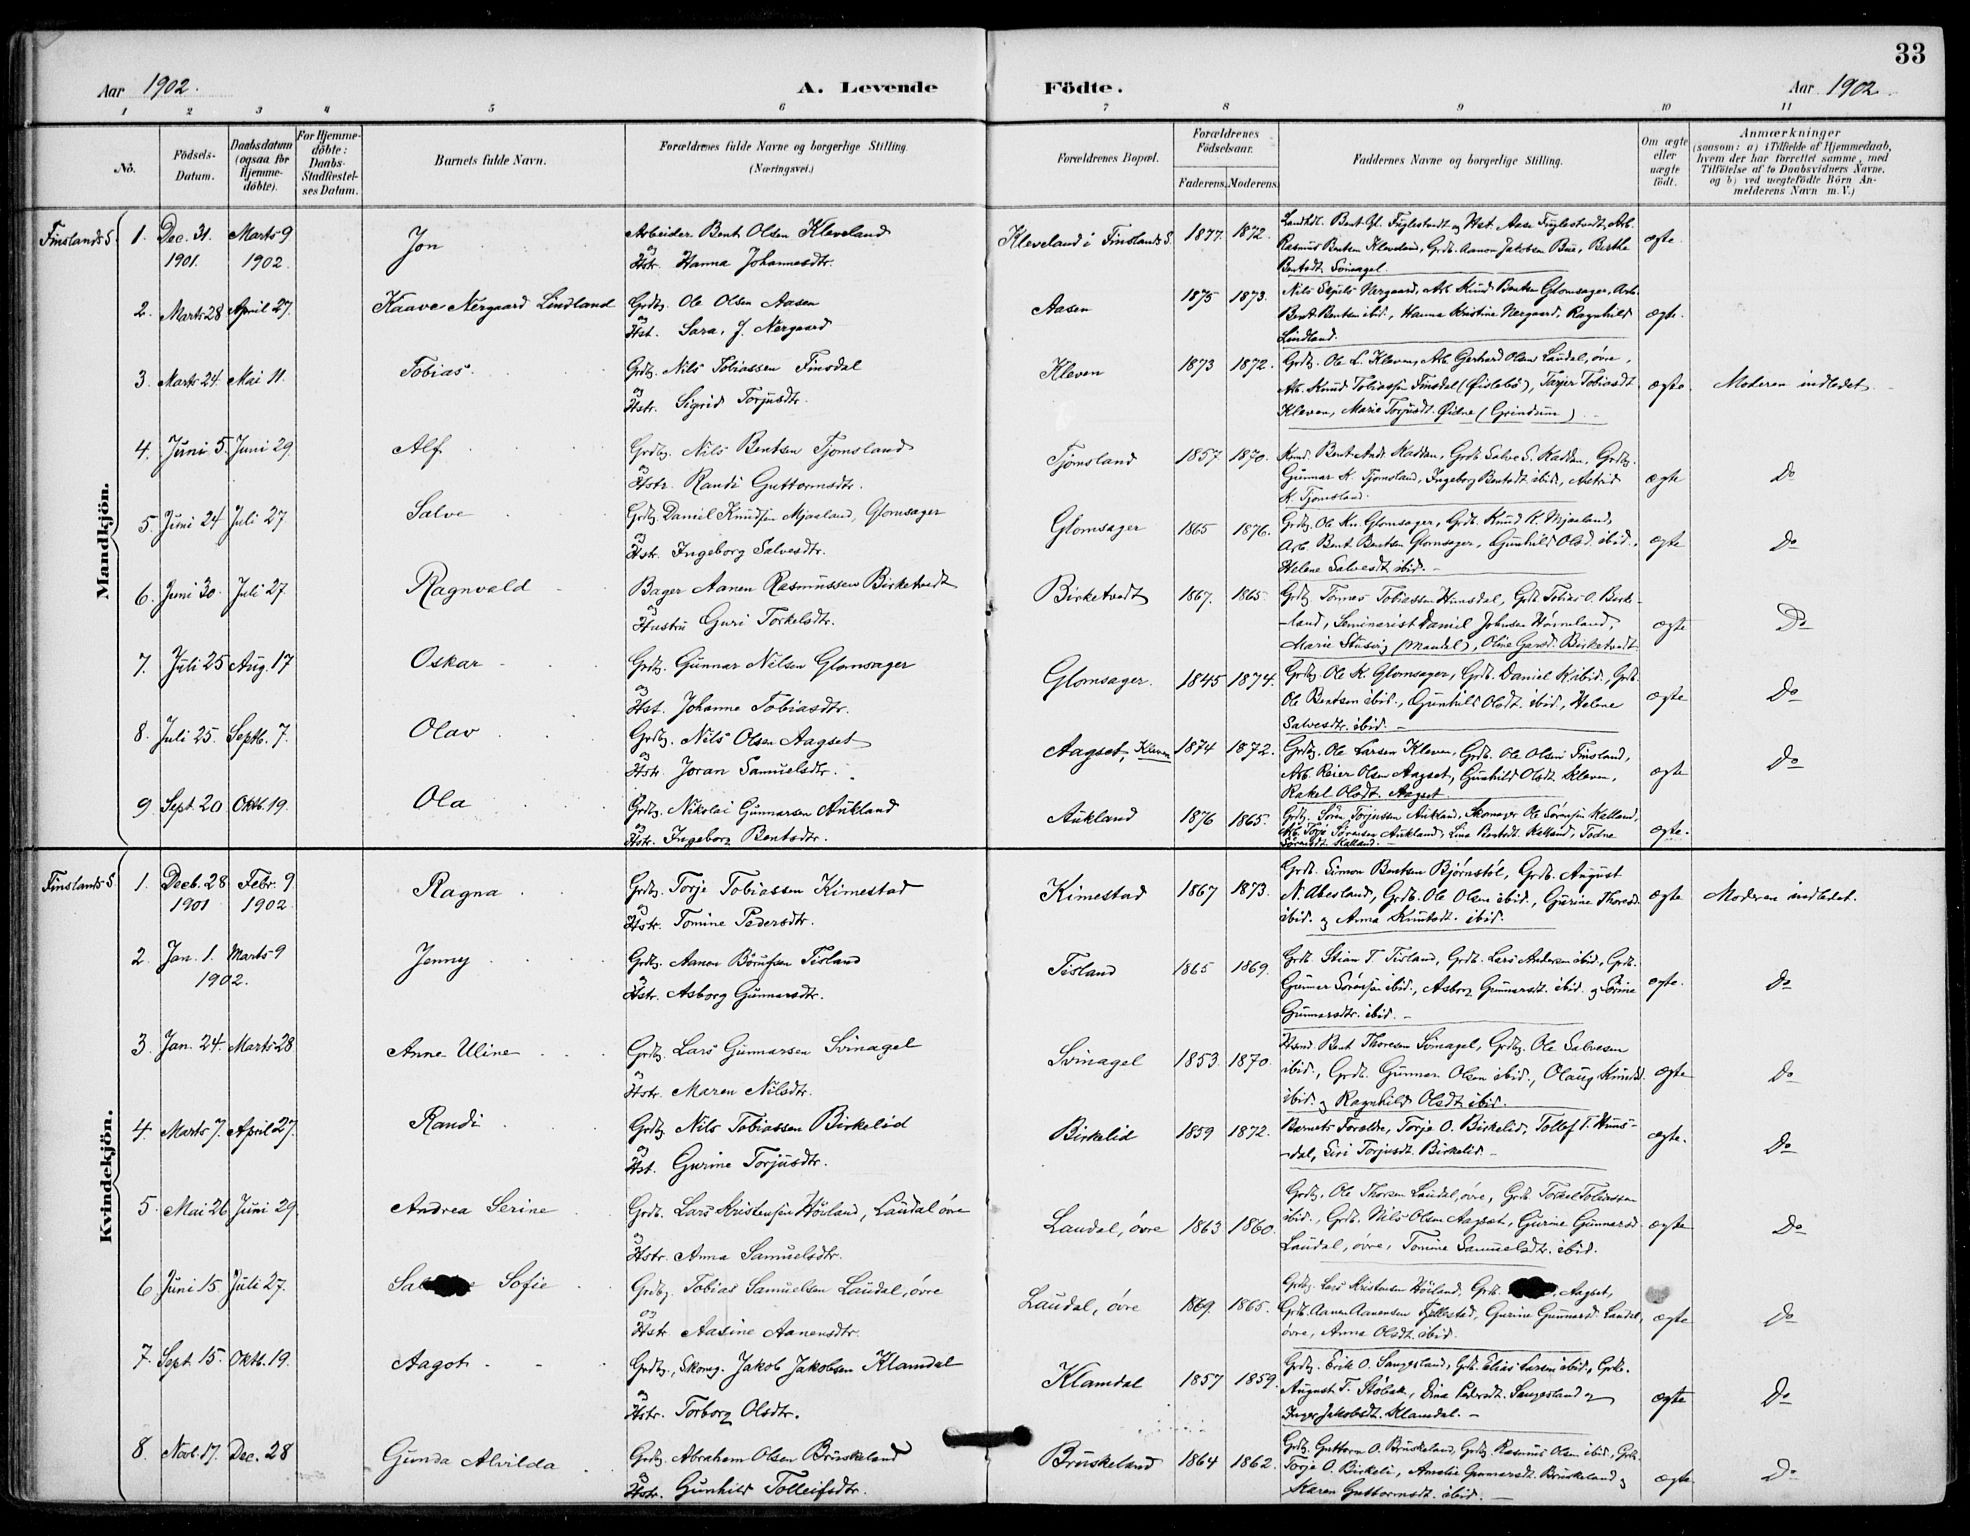 33
Aar 1902. A. Levende Födte. Aar 1902.
1 2 3 4 5 6 7 8 9 10 11
No.
Födsels-Datum.
Daabsdatum (ogsaa for Hjemme-döbte).
For Hjemme-döbte: Daabs-Stadfæstel-ses Datum.
Barnets fulde Navn.
Forældrenes fulde Navne og borgerlige Stilling. (Næringsvei.)
Forældrenes Bopæl.
Forældrenes Födselsaar.
Faderens. Moderens.
Faddernes Navne og borgerlige Stilling.
Om ægte eller uægte födt.
Anmærkninger
(saasom: a) i Tilfælde af Hjemmedaab,
hvem der har forrettet samme, med
Tilföielse af to Daabsvidners Navne.
og b) ved uægtefödte Börn An-
melderens Navn m. V.)
Mandkjön.
Finslands S. 1. Dec. 31. 1901. Marts 9 1902. Jon
Arbeider Bent Olsen Kleveland
og Hstr. Hanna Johannesdtr.
Kleveland i Finslands S. 1877. 1872.
Rasmus Bentsen Kleveland, Grdb. Aanon Jakobsen Bue, Berthe
Bentsdt. Svinagel.
ægte.
2. Marts 28 April 27. Kaave Nergaard Lindland
Grdbg. Ole Olsen Aasen
og Hst. Sara J. Nergaard
Aasen 1875 1873.
Bent Bentsen ibid., Hanna Kristine Nergaard, Ragnhild
Lindland.
ægte.
3. Marts 24. Mai 11. Tobias.
Grdbg. Nils Tobiassen Finsdal
og Hstr. Sigrid Torjusdtr.
Kleven 1873 1872.
Grdbg. Ole L. Kleven, Arb. Gerhard Olsen Laudal, övre,
Arb. Knud Tobiassen Finsdal (Öislebö), Tarjer Tobiasdt.
Kleven, Marie Torjusdt. Öidne (Grindum).
ægte. Moderen indledet.
4. Juni 5. Juni 29. Alf.
Grdbg. Nils Bentsen Tjomsland
og Hstr. Randi Guttormsdtr.
Tjomsland 1857. 1870.
Gunnar K. Tjomsland, Ingeborg Bentsdt. ibid., Astrid
K. Tjomsland.
ægte Do
5. Juni 24 Juli 27 Salve
Grdbg. Daniel Knudsen Mjaaland, Glomsager
og Hstr. Ingeborg Salvesdtr.
Glomsager 1865 1876.
Grdbg. Ole Kn. Glomsager, Grdb. Knud K. Mjaaland,
Arb. Bent Bentsen Glomsager, Gunhild Olsd. ibid.,
Helene Salvesdt. ibid.
ægte Do
6. Juni 30. Juli 27. Ragnvald
Bager Aanen Rasmussen Birketvedt
og Hustru Guri Torkelsdtr.
Birketvedt 1867. 1865.
Grdbg. Tomes Tobiassen Hunsdal, Grdb. Tobias O. Birke-
-land, Seminarist Daniel Johnsen
Marie Stusvig (Mandal), Birketvedt.
ægte Do
7. Juli 25 Aug. 17 Oskar
Grdbg. Gunnar Nilsen Glomsager
og Hst. Johanne Tobiasdtr.
Glomsager. 1845 1874.
Grdbg. Ole K. Glomsager, Grdb. Daniel K. ibid., Grdb.
Ole Bentsen ibid., Gunhild Olsdt. ibid., Helene
Salvesdtr. ibid.
ægte Do
8. Juli 25. Septb. 7. Olav
Grdbg. Nils Olsen Aagset
og Hstr. Joran Samuelsdtr.
Aagset, Kleven 1874 1872.
Grdbg. Ole Larsen Kleven, Grdb. Ole Olsen Finsland,
Arb. Reier Olsen Aagset, Gunhild Olsdt. Kleven,
Rakel Olsdt. Aagset.
ægte Do
9 Sept. 20 Oktb. 19. Ola
Grdbg. Nikolai Gunnarsen Aukland
og Hstr. Ingeborg Bentsdtr.
Aukland 1876 1865.
Grdbg. Sören Torjussen Aukland, Skomager Ole Sörensen Kalland,
Arb. Torje Sörensen Aukland, Lina Bentsdt. Kalland, Todne
Sörensdt. Kalland.
ægte.
Kvindekjön.
Finslands S. 1. Decb. 28 1901 Febr. 9. 1902. Ragna
Grdbg. Torje Tobiassen Kimestad
og Hstr. Tomine Pedersdtr.
Kimestad 1867 1873.
Grdb. Simon Bentsen Björnstöl, Grdb. August
N. Abesland, Grdb. Ole Olsen ibid., Gurine Thoresd.
ibid. og Anna Knutsdt. ibid.
ægte Moderen indledet.
2. Jan. 1. 1902. Marts 9 Jenny
Grdbg. Aanon Börufsen Tisland
og Hstr. Asborg Gunnarsdtr.
Tisland 1865 1869.
Grdb. Stian T. Tisland, Grdb. Lars Andersen ibid., Grdb.
Gunnar Sörensen ibid., Asborg Gunnarsdt. ibid. og Sörine
Gunnarsdtr. ibid.
ægte. Do
3. Jan. 24. Marts 28 Anne Uline
Grdbg. Lars Gunnarsen Svinagel
og Hstr. Maren Nilsdtr.
Svinagel 1853. 1870.
Bent Thoresen Svinagel, Grdbg. Ole Salvesen
ibid., Grdb. Gunnar Olsen ibid., Olaug Knudsd.
ibid. og Ragnhild Olsdt. ibid.
ægte Do
4. Marts 7. April 27. Randi
Grdbg. Nils Tobiassen Birkelid
og Hst. Gurine Torjusdtr.
Birkelid 1859 1872.
Barnets Forældre, Torje O. Birkelid, Tollef T. Huns-
-dal, Siri Torjusdt. Birkelid.
ægte. Do
5. Mai 26 Juni 29. Andrea Serine
Grdb. Lars Kristensen Hörland, Laudal övre
og Hstr. Anna Samuelsdtr.
Laudal, övre 1863 1860.
Grdbg. Ole Thorsen Laudal, övre, Grdb. Torkel Tobiassen
ibid., Grdb. Nils Olsen Aagset, Gurine Gunnarsd.
Laudal, övre, Tomine Samuelsdt. ibid.
ægte Do
6 Juni 15. Juli 27. Sofie
Grdbg. Tobias Samuelsen Laudal, övre
og Hstr. Aasine Aanensdtr.
Laudal, övre 1869. 1865.
Grdbg. Lars Kristensen Hörland, Grdb. Aagset,
Grdb. Aanen Aanensen Fjellestad, Gurine Gunnarsd. Laudal,
övre, Anna Olsdt. ibid.
ægte Do
7. Sept. 15. Oktb. 19. Aagot
Grdbg., Skomg. Jakob Jakobsen Klamdal
og Hstr. Torborg Olsdtr.
Klamdal 1857 1859.
Grdbg. Erik O. Saugesland, Grdb. Elias Larsen ibid., Grdb.
August T. Stöbak, Dina Pedersdt. Saugesland og
Inger Jakobsdt. Klamdal.
ægte Do
8. Novb. 17. Dec. 28 Gunda Alvilda
Grdbg. Abraham Olsen Bruskeland
og Hstr. Gunhild Tolleifsdtr.
Bruskeland 1864 1862.
Grdbg. Guttorm O. Bruskeland, Grdbg. Rasmus Olsen ibid., Grdb.
Torje O. Birkeli, Amalie Gunnarsdt. Bruskeland og
Karen Guttormsdt. ibid.
ægte Do